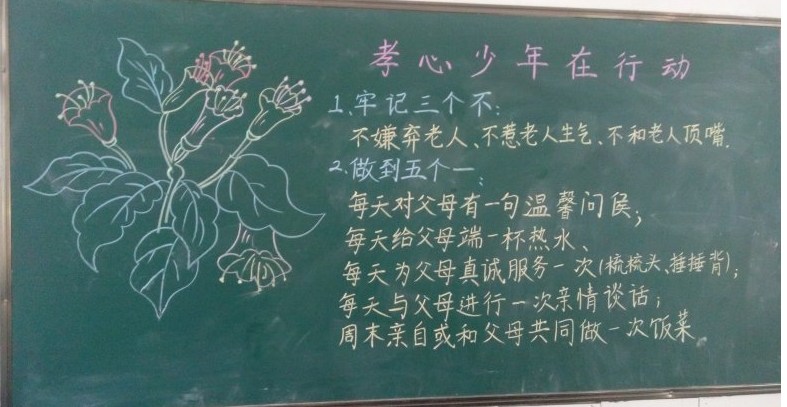 孝心少年在行动
1、牢记三个不:
不嫌弃老人、不惹老人生气、不和老人顶嘴.
2.做到五个一:
每天对父母有一句温馨问侯;
每天给父母端一杯热水、
每天为父母真诚服务一次(梳梳头、捶捶背);
每天与父母进行一次亲情谈话;
周末亲自或和父母共同做一次饭菜